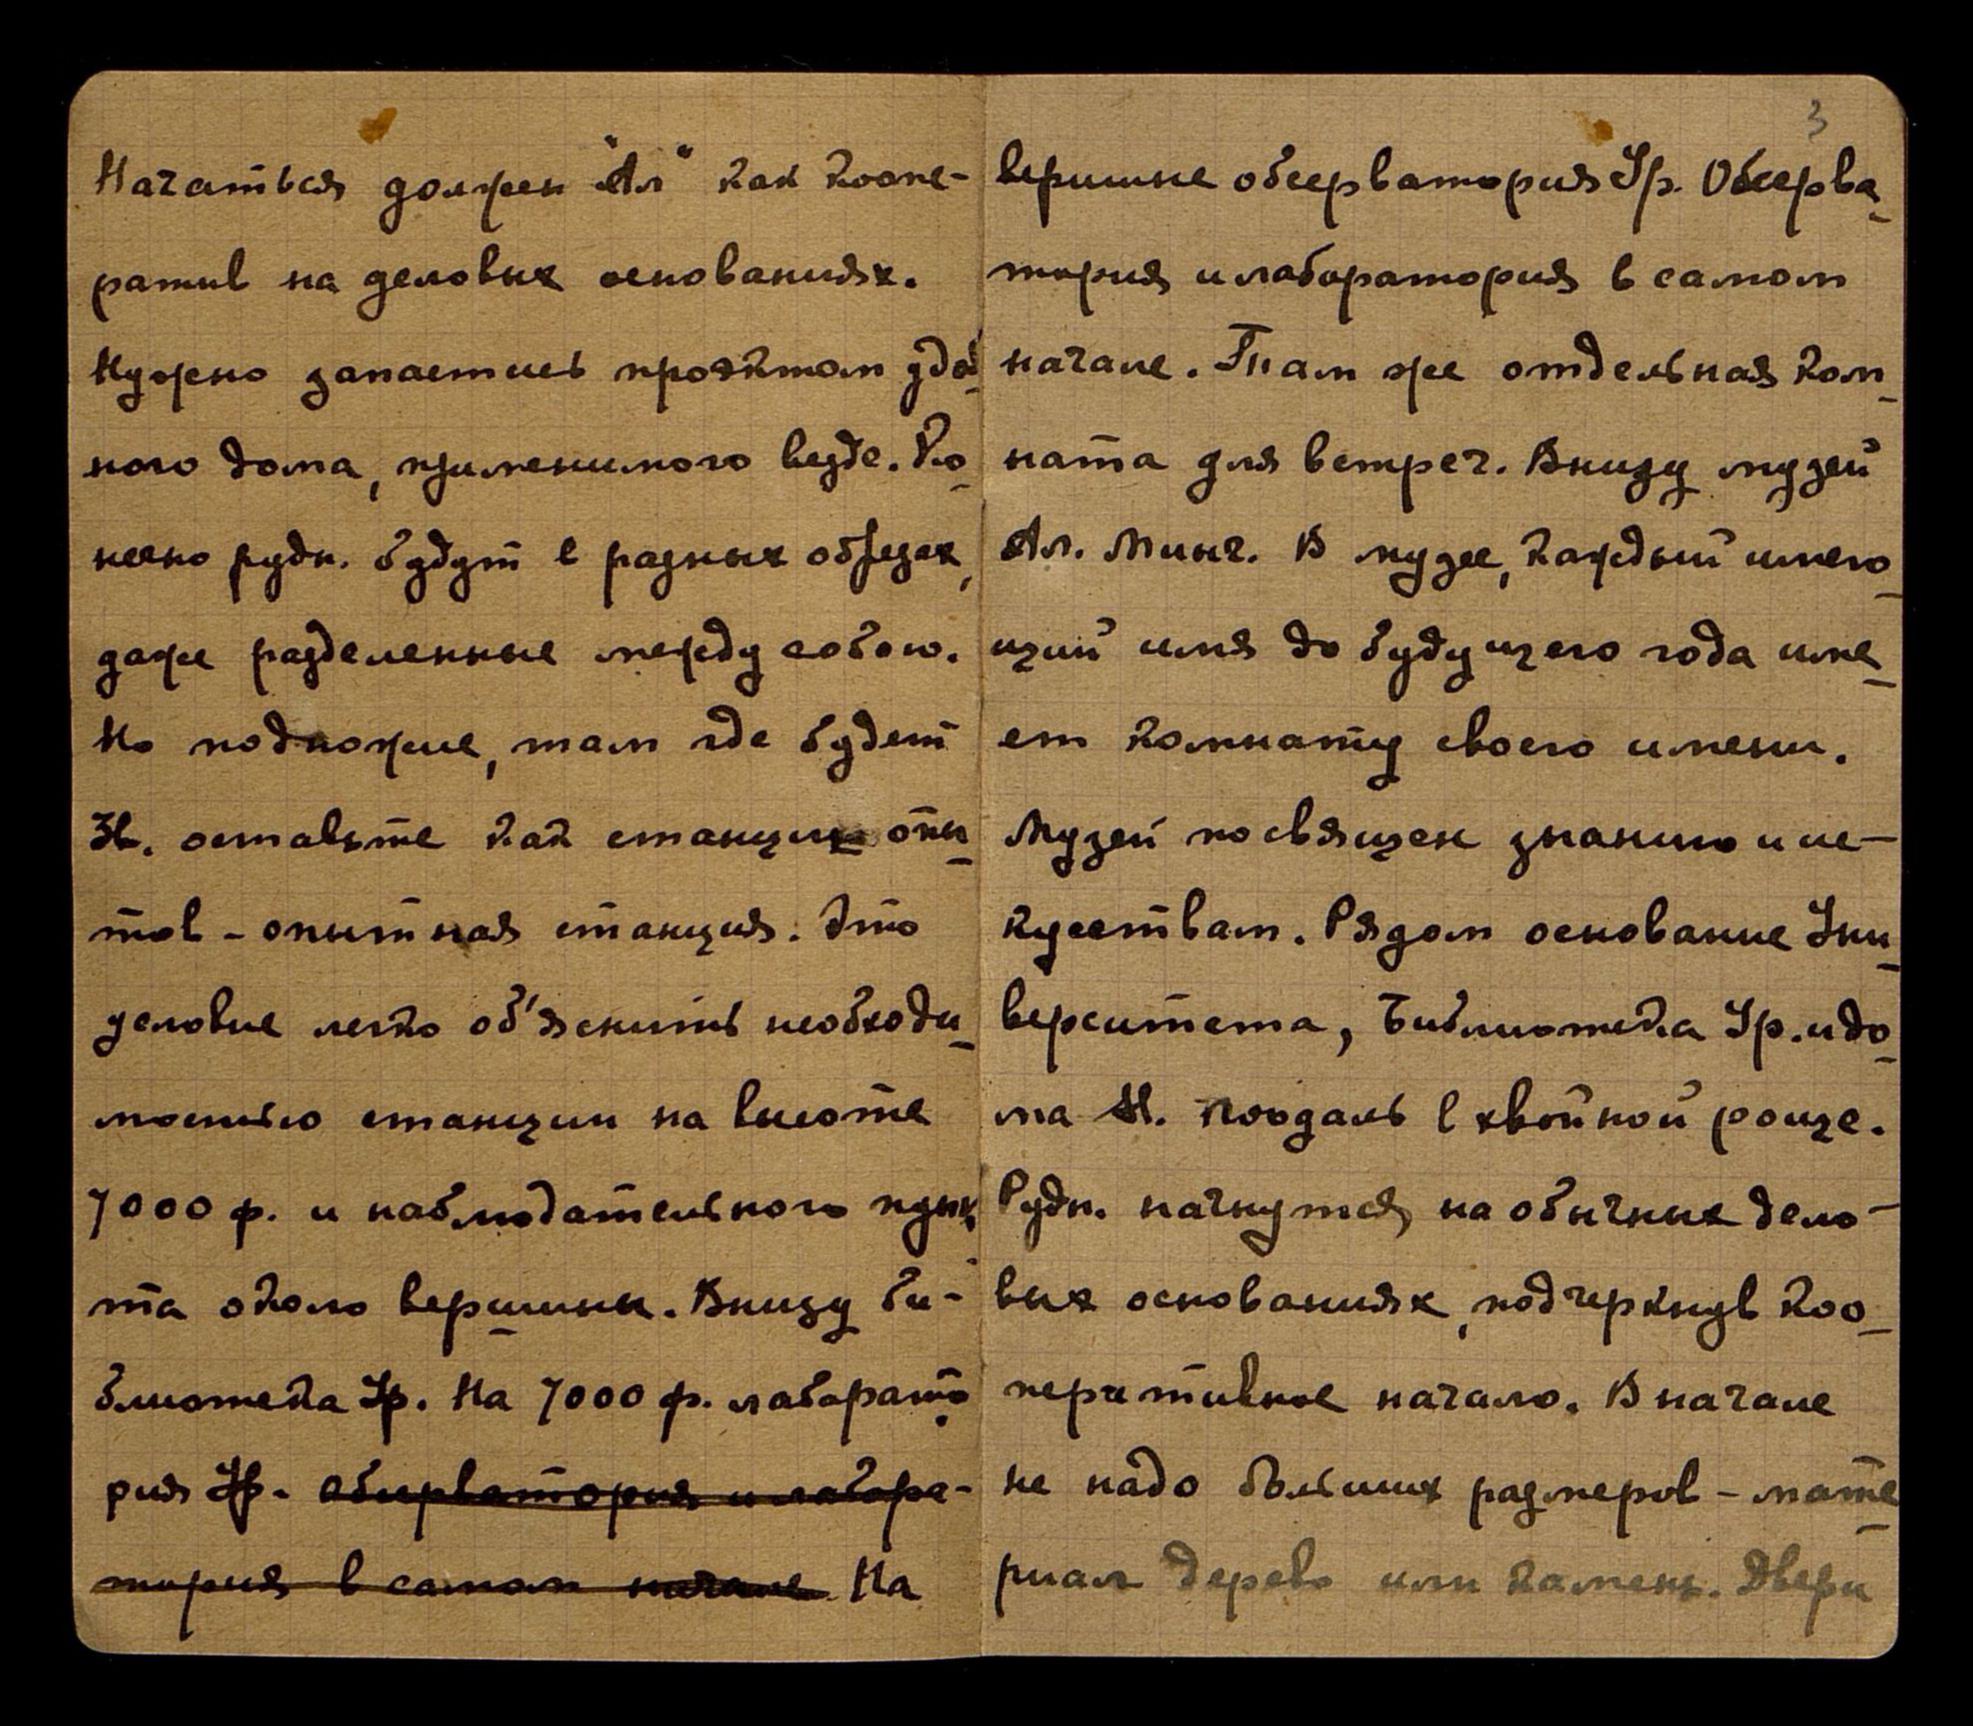 Начаться должен "Ал" как коопе-
ратив на деловых основаниях.
Нужно запастись проэктом удоб
ного дома, применимого везде. Ко
нечно рудн. будут в разных образах,
даже разделенные между собою.
Но подножие, там где будет
Зв. оставьте как станции опы
тов - опытная станция. Это
условие легко об'яснить необходи
мостью станции на высоте
7000 ф. и наблюдательного пунк
та около вершины. Внизу би-
блиотека Ур. На 7000 ф. лаборато
рия Ур. обсерватория и лабора-
тория в самом начале. На
3
вершине обсерватория Ур. Обсерва
тория и лаборатория в самом
начале. Там же отдельная ком
ната для встреч. Внизу музей
Ал. Минг. В музее, каждый имею
щий имя до будущего года име
ет комнату своего имени.
Музей посвящен знанию и ис-
кусствам. Рядом основание Уни
верситета, Библиотека Ур. и до
ма М. поодаль в хвойной роще.
Рудн. начнутся на обычных дело-
вых основаниях, подчеркнув коо
перативное начало. В начале
не надо больших размеров - мате
риал дерево или камень. Двери